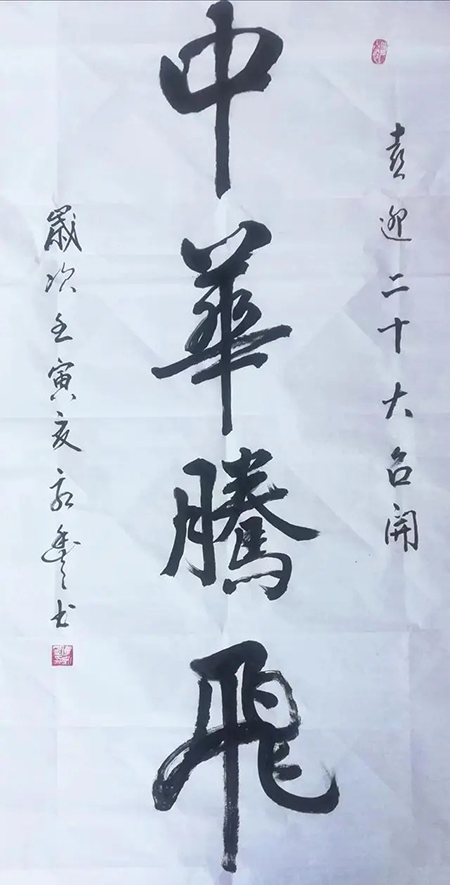 喜迎二十大召開
中華騰飛
歲次壬寅夏書